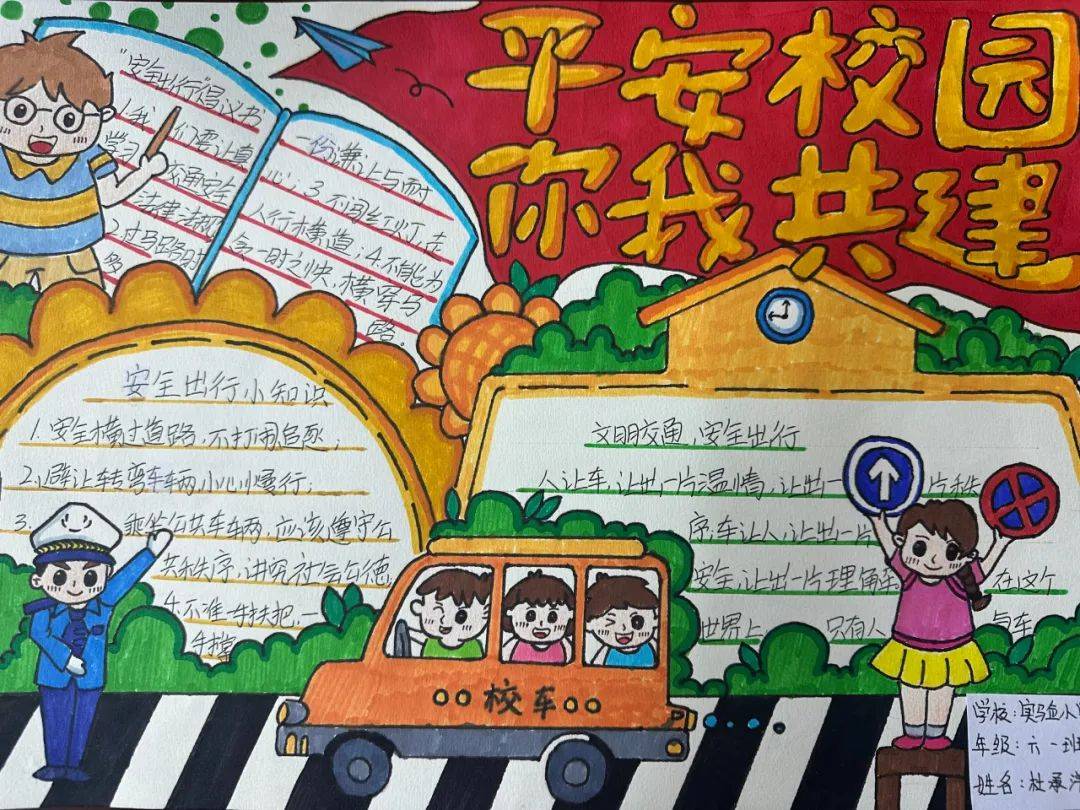 平安校园
你我共建
"安全出行"倡议书
1.我们要认真
学习交通安全
法律法规
2.过马路时
多
一份谦让与耐
心；3.不闯红灯走
人行横道；4.不能为
贪一时之快，横穿马
路。
安全出行小知识
1.安全横过道路，不打闹追逐；
2.避让转弯车辆，小心慢行；
3.乘坐公共车辆，应该遵守公
共秩序，讲究社会公德
4.不准一手扶把，一
手撑
文明交通，安全出行
人让车，让出一片温情，让出一片秩
序，车让人，让出一片
安全，让出一片理解 在这个
世界上 只有人与车
校车
学校：实验小
年级：六一班
姓名：杜承